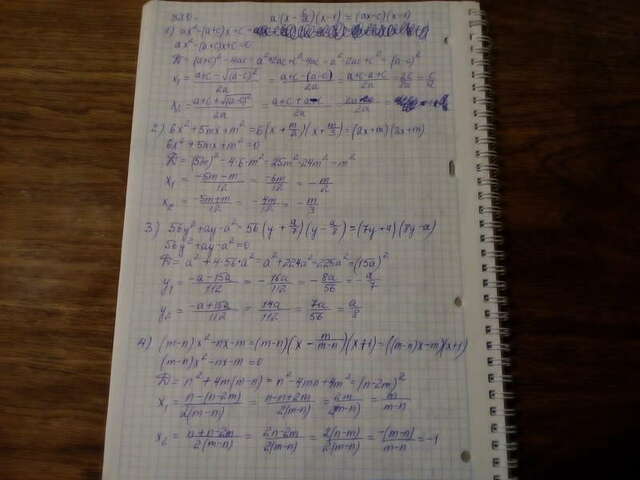 320. a(x - c/a)(x-1) = (ax-c)(x-1)
1) ax² - (a+c)x + c =
ax² - (a+c)x + c = 0
D = (a+c)² - 4ac = a² + 2ac + c² - 4ac = a² - 2ac + c² = (a-c)²
x₁ = (a+c - √(a-c)²)/2a = (a+c-(a-c))/2a = (a+c-a+c)/2a = 2c/2a = c/a
x₂ = (a+c+√(a-c)²)/2a = (a+c+a-c)/2a = 2a/2a =
2) 6x² + 5mx + m² = 6(x + m/2)(x + m/3) = (2x+m)(3x+m)
6x² + 5mx + m² = 0
D = (5m)² - 4·6·m² = 25m² - 24m² = m²
x₁ = (-5m-m)/12 = -6m/12 = -m/2
x₂ = (-5m+m)/12 = -4m/12 = -m/3
3) 56y² + ay - a² = 56(y + a/7)(y - a/8) = (7y+a)(8y-a)
56y² + ay - a² = 0
D = a² + 4·56·a² = a² + 224a² = 225a² = (15a)²
y₁ = (-a-15a)/112 = -16a/112 = -8a/56 = -a/7
y₂ = (-a+15a)/112 = 14a/112 = 7a/56 = a/8
4) (m-n)x² - nx - m = (m-n)(x - m/(m-n))(x+1) = ((m-n)x-m)(x+1)
(m-n)x² - nx - m = 0
D = n² + 4m(m-n) = n² - 4mn + 4m² = (n-2m)²
x₁ = (n-(n-2m))/2(m-n) = (n-n+2m)/2(m-n) = 2m/2(m-n) = m/(m-n)
x₂ = (n+n-2m)/2(m-n) = (2n-2m)/2(m-n) = 2(n-m)/2(m-n) = -(m-n)/(m-n) = -1